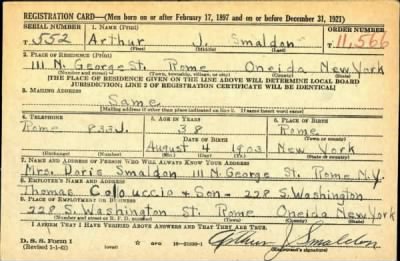 REGISTRATION CARD—(Men born on or after February 17, 1897 and on or before December 31, 1921)
SERIAL NUMBER 1. NAME (Print) ORDER NUMBER
T 552 Arthur J. Smaldon T 11,566
(First) (Middle) (Last)
2. PLACE OF RESIDENCE (Print)
111 N. George St. Rome Oneida New York
(Number and street) (Town, township, village, or city) (County) (State)
[THE PLACE OF RESIDENCE GIVEN ON THE LINE ABOVE WILL DETERMINE LOCAL BOARD
JURISDICTION; LINE 2 OF REGISTRATION CERTIFICATE WILL BE IDENTICAL]
3. MAILING ADDRESS
Same
[Mailing address if other than place indicated on line 2. If same insert word same]
4. TELEPHONE 5. AGE IN YEARS 6. PLACE OF BIRTH
Rome 833J. 38 Rome
DATE OF BIRTH (Town or county)
August 4 1903 New York
(Exchange) (Number) (Mo.) (Day) (Yr.) (State or country)
7. NAME AND ADDRESS OF PERSON WHO WILL ALWAYS KNOW YOUR ADDRESS
Mrs. Doris Smaldon 111 N. George St. Rome N.Y.
8. EMPLOYER'S NAME AND ADDRESS
Thomas Coluccio & Son - 228 S. Washington
9. PLACE OF EMPLOYMENT OR BUSINESS
228 S. Washington St. Rome Oneida New York
(Number and street or R. F. D. number) (Town) (County) (State)
I AFFIRM THAT I HAVE VERIFIED ABOVE ANSWERS AND THAT THEY ARE TRUE.
D. S. S. Form 1
(Revised 5-1-42) (over) 16-21630-1 Arthur J Smaldon
(Registrant's signature)